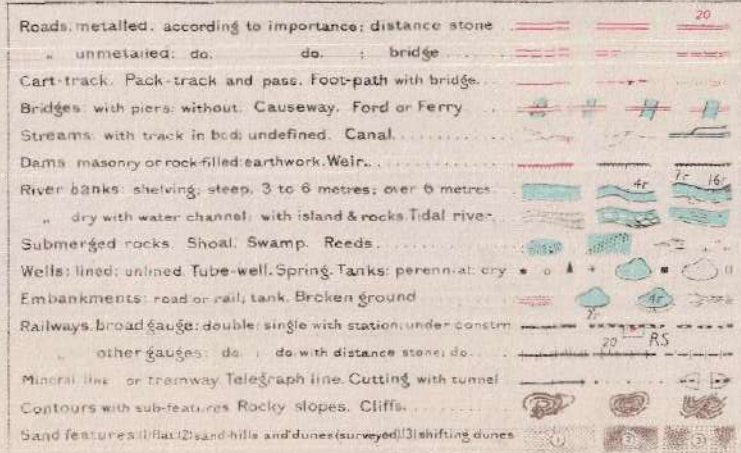 20
Roads, metalled, according to importance; distance stone
" unmetalled: do. do. ; bridge
Cart-track. Pack-track and pass. Foot-path with bridge.
Bridges: with piers; without. Causeway. Ford or Ferry
Streams: with track in bed; undefined. Canal.
Dams: masonry or rock-filled; earthwork. Weir.
River banks: shelving; steep, 3 to 6 metres; over 6 metres 4r 7r 16r
" dry with water channel; with island & rocks. Tidal river
Submerged rocks. Shoal. Swamp. Reeds.
Wells: lined; unlined. Tube-well. Spring. Tanks: perennial; dry
Embankments: road or rail; tank. Broken ground
Railways, broad gauge: double; single with station; under constrn RS
" other gauges: do. ; do. with distance stone; do. 20
Mineral line or tramway. Telegraph line. Cutting with tunnel
Contours with sub-features. Rocky slopes. Cliffs.
Sand features: (1) flat (2) sand-hills and dunes (surveyed) (3) shifting dunes 1 2 3